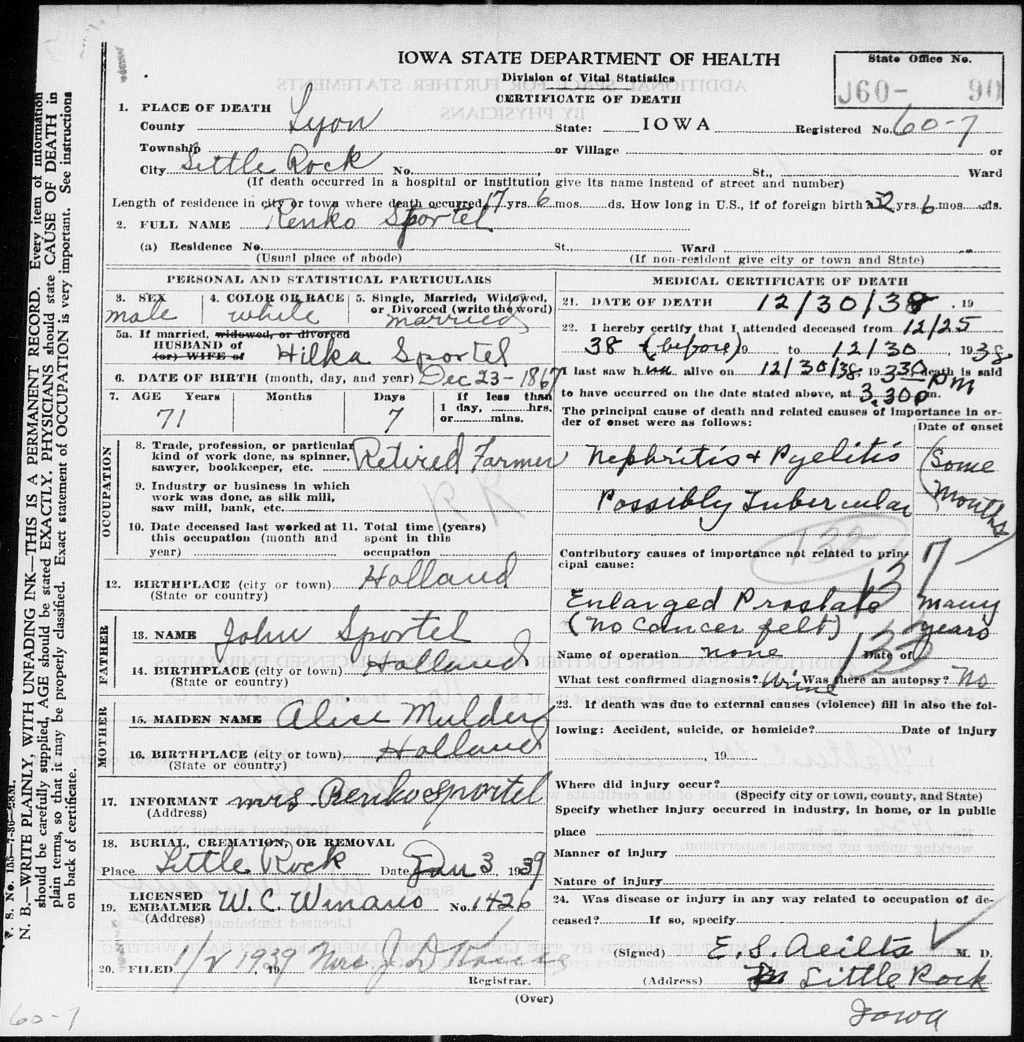 IOWA STATE DEPARTMENT OF HEALTH
Division of Vital Statistics
CERTIFICATE OF DEATH
State Office No.
J60- 90
1. PLACE OF DEATH
County Lyon State: IOWA Registered No. 60-7
Township or Village or
City Little Rock No. St., Ward
(If death occurred in a hospital or institution give its name instead of street and number)
Length of residence in city or town where death occurred 17 yrs. 6 mos. ds. How long in U.S., if of foreign birth? 52 yrs. 6 mos. ds.
2. FULL NAME Renko Sportel
(a) Residence No. St., Ward
(Usual place of abode) (If non-resident give city or town and State)
PERSONAL AND STATISTICAL PARTICULARS
3. SEX 4. COLOR OR RACE 5. Single, Married, Widowed,
or Divorced (write the word)
male white married
5a. If married, widowed, or divorced
HUSBAND of
(or) WIFE of Hilka Sportel
6. DATE OF BIRTH (month, day, and year) Dec 23-1867
7. AGE Years Months Days If less than
1 day, hrs.
71 7 or mins.
OCCUPATION
8. Trade, profession, or particular
kind of work done, as spinner,
sawyer, bookkeeper, etc. Retired Farmer
9. Industry or business in which
work was done, as silk mill,
saw mill, bank, etc.
10. Date deceased last worked at 11. Total time (years)
this occupation (month and spent in this
year) occupation
12. BIRTHPLACE (city or town) Holland
(State or country)
FATHER
13. NAME John Sportel
14. BIRTHPLACE (city or town) Holland
(State or country)
MOTHER
15. MAIDEN NAME Alice Mulder
16. BIRTHPLACE (city or town) Holland
(State or country)
17. INFORMANT Mrs Renko Sportel
(Address)
18. BURIAL, CREMATION, OR REMOVAL
Place Little Rock Date Jan 3, 1939
19. LICENSED
EMBALMER W. C. Winans No. 1426
(Address)
20. FILED 1/2 1939 Mrs J D
Registrar.
MEDICAL CERTIFICATE OF DEATH
21. DATE OF DEATH 12/30/38 , 19
22. I hereby certify that I attended deceased from 12/25
38 & (before) 19 to 12/30, 1938
I last saw him alive on 12/30/38, 19 3:30 PM death is said
to have occurred on the date stated above, at 3.30 p m.
The principal cause of death and related causes of importance in or-
der of onset were as follows: Date of onset
Nephritis & Pyelitis (Some
Possibly Tubercular Months)
132
Contributory causes of importance not related to prin-
cipal cause:
137
Enlarged Prostate many
(no cancer felt) years
Name of operation none Date of
133
What test confirmed diagnosis? Urine Was there an autopsy? No
23. If death was due to external causes (violence) fill in also the fol-
lowing: Accident, suicide, or homicide? Date of injury
, 19
Where did injury occur?
(Specify city or town, county, and State)
Specify whether injury occurred in industry, in home, or in public
place
Manner of injury
Nature of injury
24. Was disease or injury in any way related to occupation of de-
ceased? If so, specify
(Signed) E. S. Aeilts M. D.
(Address) Little Rock
Iowa
(Over)
60-7
N. B.—WRITE PLAINLY, WITH UNFADING INK—THIS IS A PERMANENT RECORD. Every item of information
should be carefully supplied, AGE should be stated EXACTLY. PHYSICIANS should state CAUSE OF DEATH in
plain terms, so that it may be properly classified. Exact statement of OCCUPATION is very important. See instructions
on back of certificate.